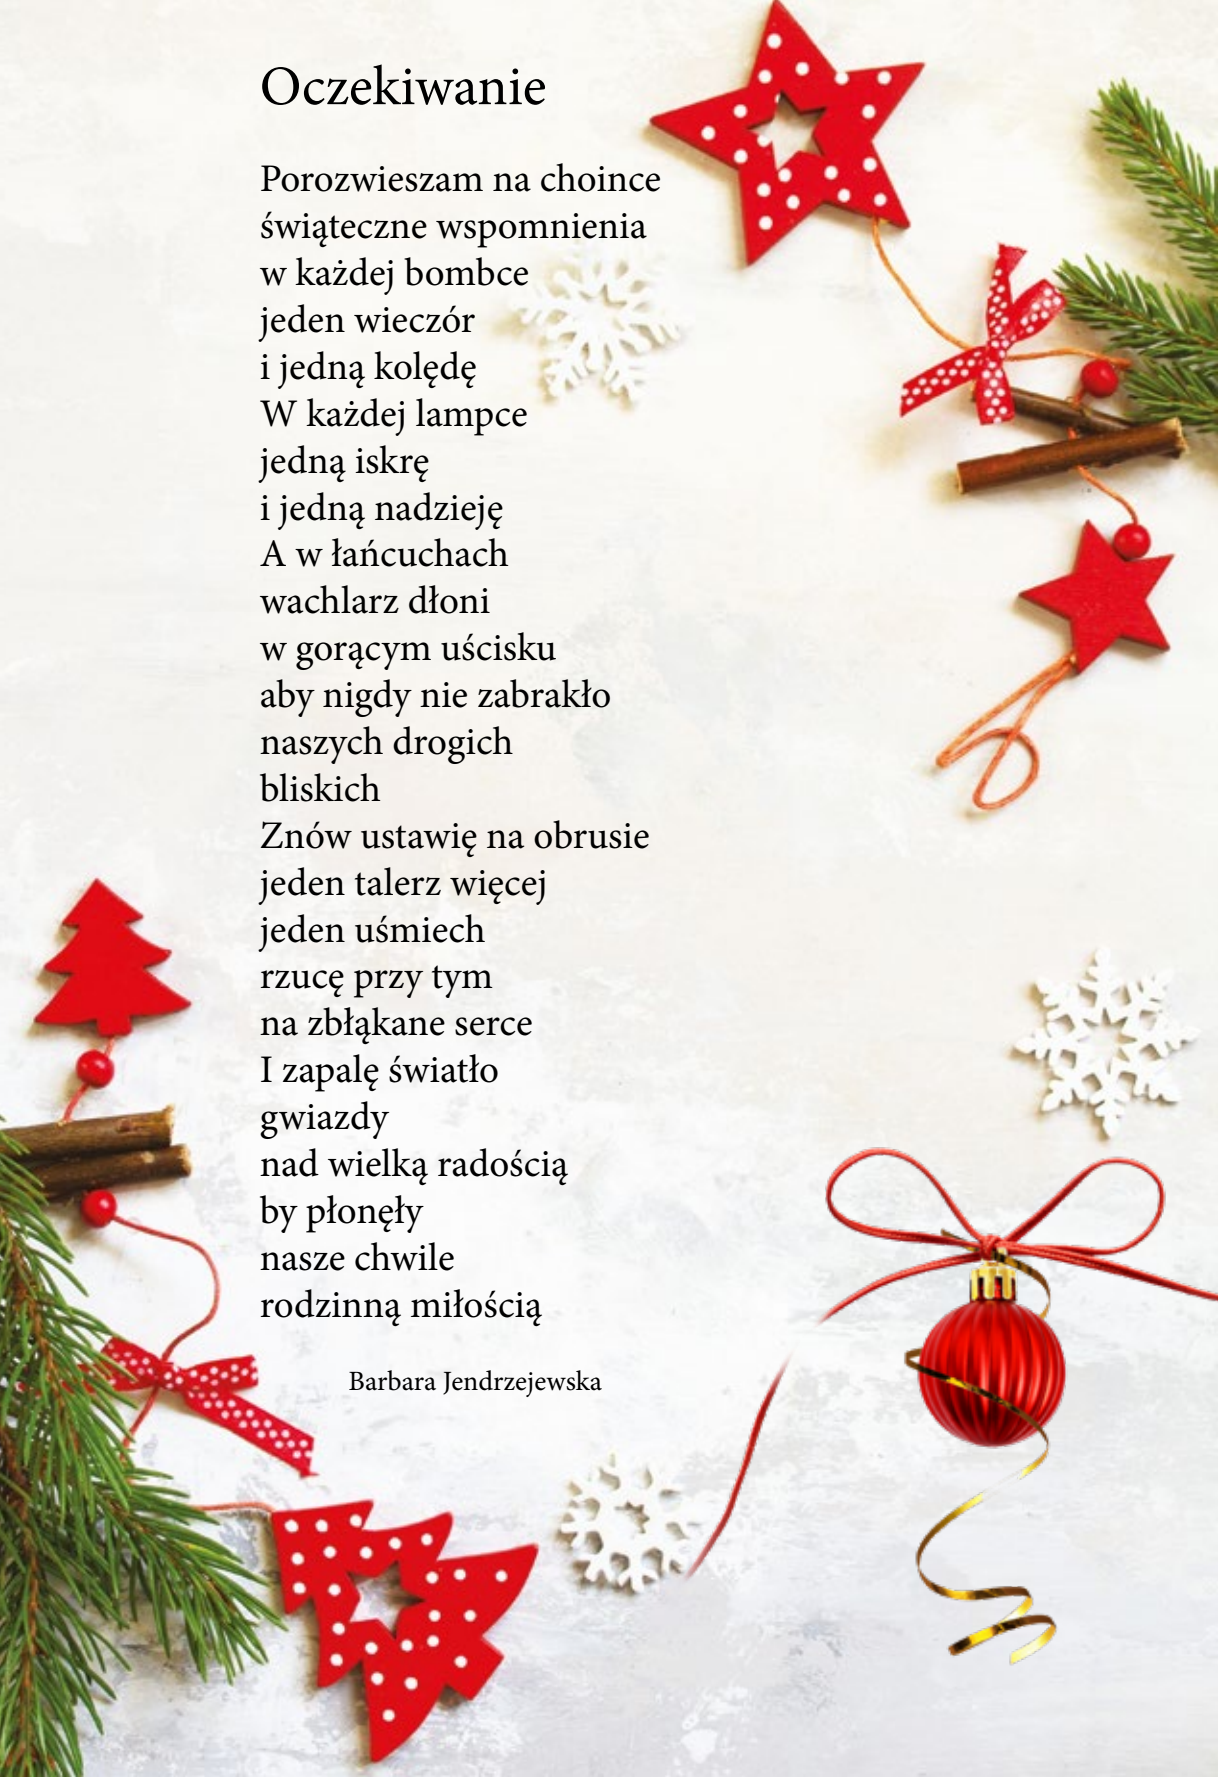 Oczekiwanie
Porozwieszam na choince
świąteczne wspomnienia
w każdej bombce
jeden wieczór
i jedną kolędę
W każdej lampce
jedną iskrę
i jedną nadzieję
A w łańcuchach
wachlarz dłoni
w gorącym uścisku
aby nigdy nie zabrakło
naszych drogich
bliskich
Znów ustawię na obrusie
jeden talerz więcej
jeden uśmiech
rzucę przy tym
na zbłąkane serce
I zapalę światło
gwiazdy
nad wielką radością
by płonęły
nasze chwile
rodzinną miłością
Barbara Jendrzejewska